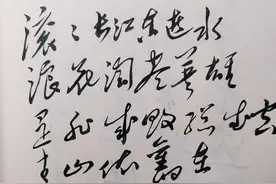 滚〻长江东逝水
浪花淘尽英雄
是非成败转头空
青山依舊在